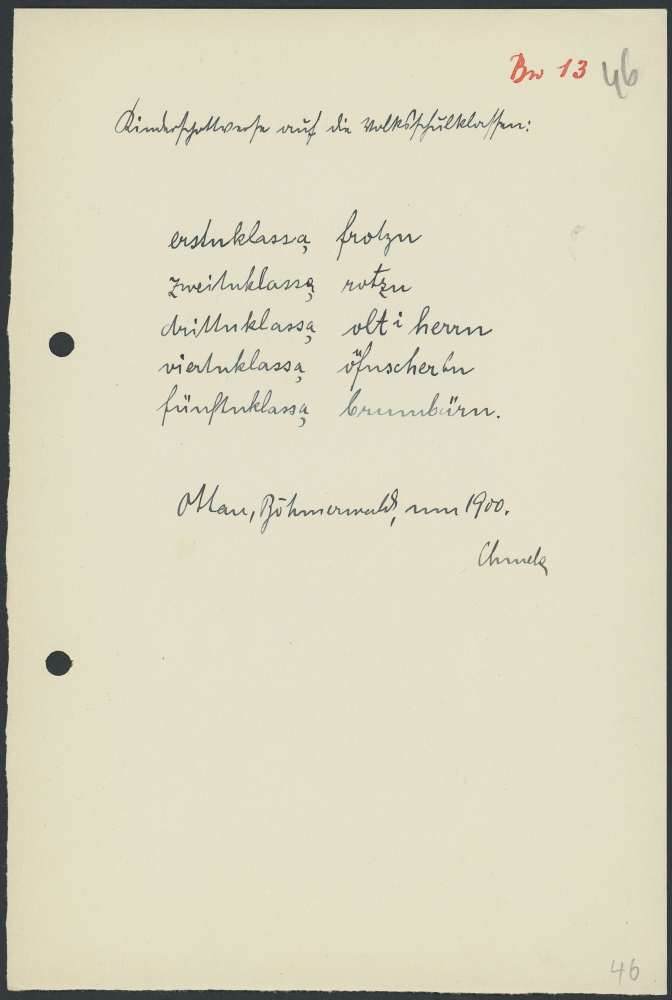 Bw 13 46
Kinderspottverse auf die Volksschulklassen:
erstnklassą frotzn
zweitnklassą rotzn
drittnklassą olt i herrn
viertnklassą öfnscherbn
fünftnklassą brummbärn.
Ottau, Böhmerwald, um 1900.
46